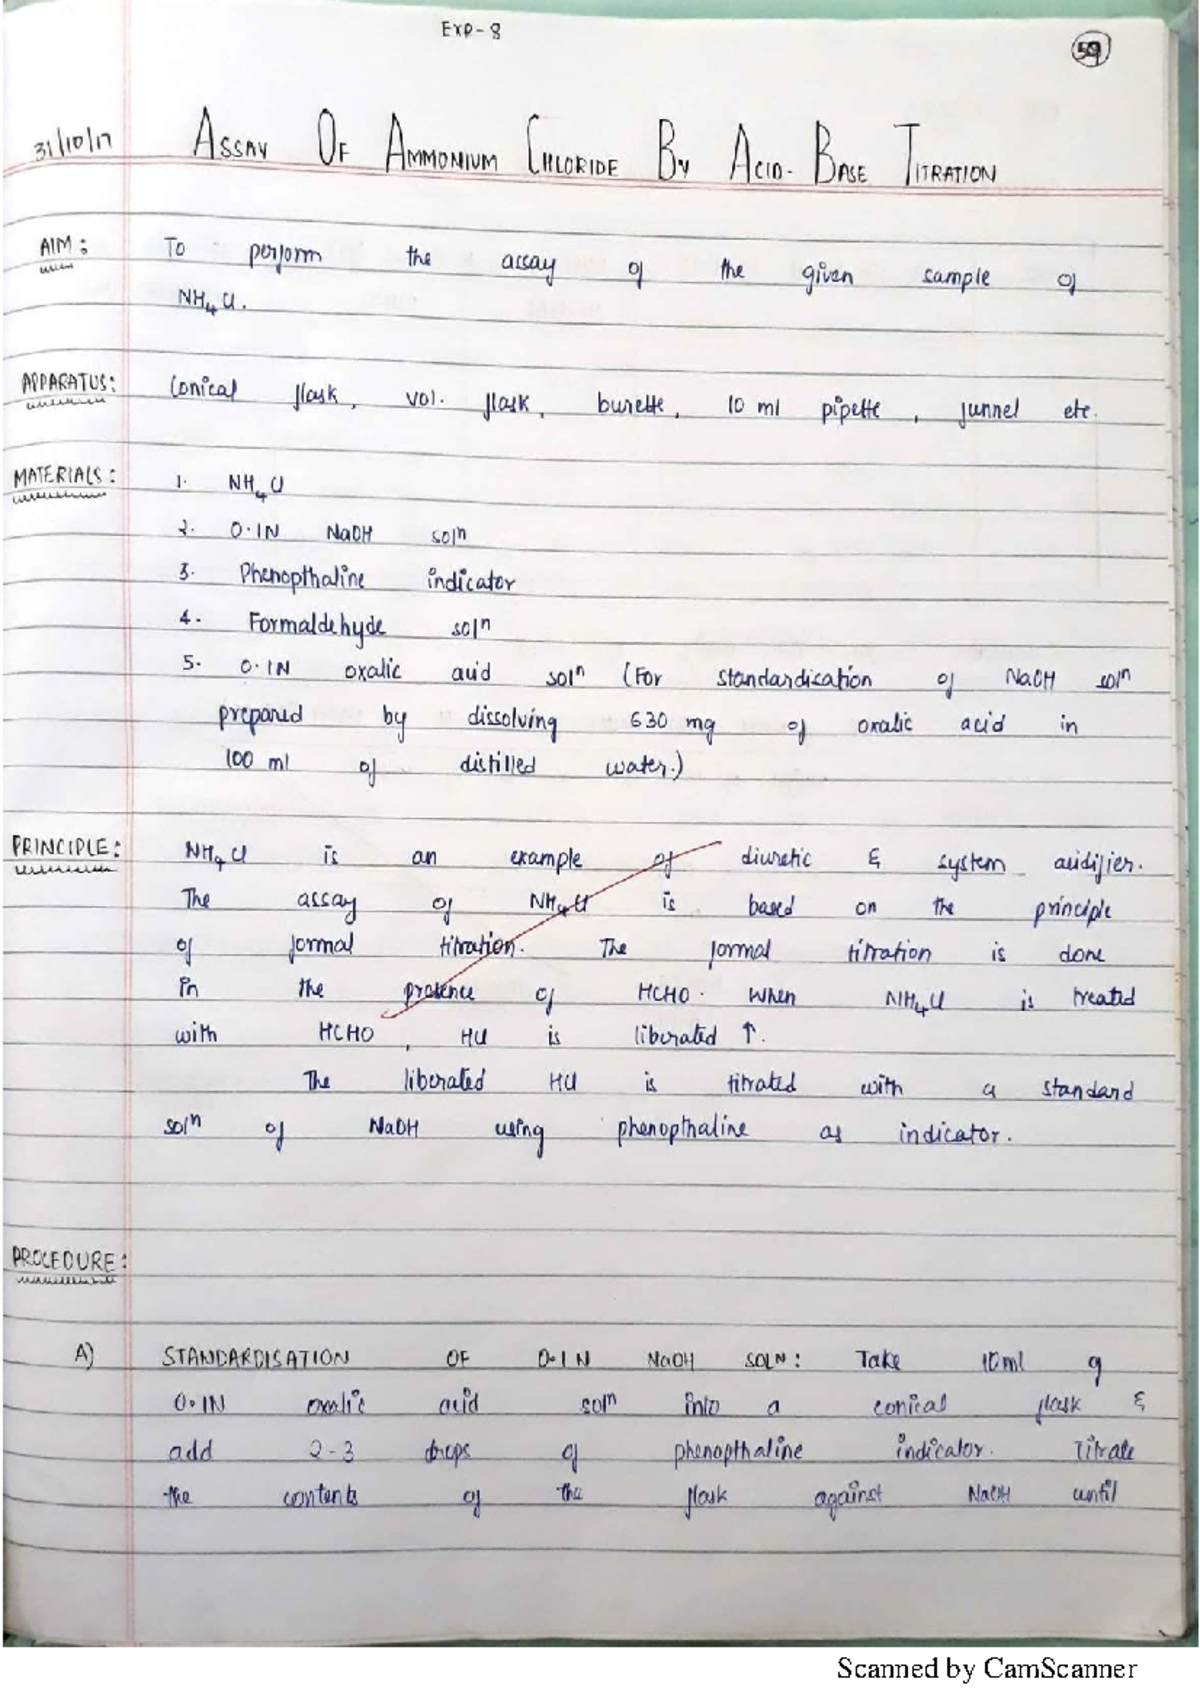 Exp - 8
59
31/10/17 ASSAY OF AMMONIUM CHLORIDE BY ACID-BASE TITRATION
AIM: To perform the assay of the given sample of
NH4Cl.
APPARATUS: Conical flask, vol. flask, burette, 10 ml pipette, funnel etc.
MATERIALS: 1. NH4Cl
2. 0.1N NaOH solⁿ
3. Phenopthaline indicator
4. Formaldehyde solⁿ
5. 0.1N oxalic acid solⁿ (For standardisation of NaOH solⁿ
prepared by dissolving 630 mg of oxalic acid in
100 ml of distilled water.)
PRINCIPLE: NH4Cl is an example of diuretic & system acidifier.
The assay of NH4Cl is based on the principle
of formal titration. The formal titration is done
in the presence of HCHO. When NH4Cl is treated
with HCHO, HCl is liberated ↑.
The liberated HCl is titrated with a standard
solⁿ of NaOH using phenopthaline as indicator.
PROCEDURE:
A) STANDARDISATION OF 0.1N NaOH SOLN: Take 10ml of
0.1N oxalic acid solⁿ into a conical flask &
add 2-3 drops of phenopthaline indicator. Titrate
the contents of the flask against NaOH until
Scanned by CamScanner